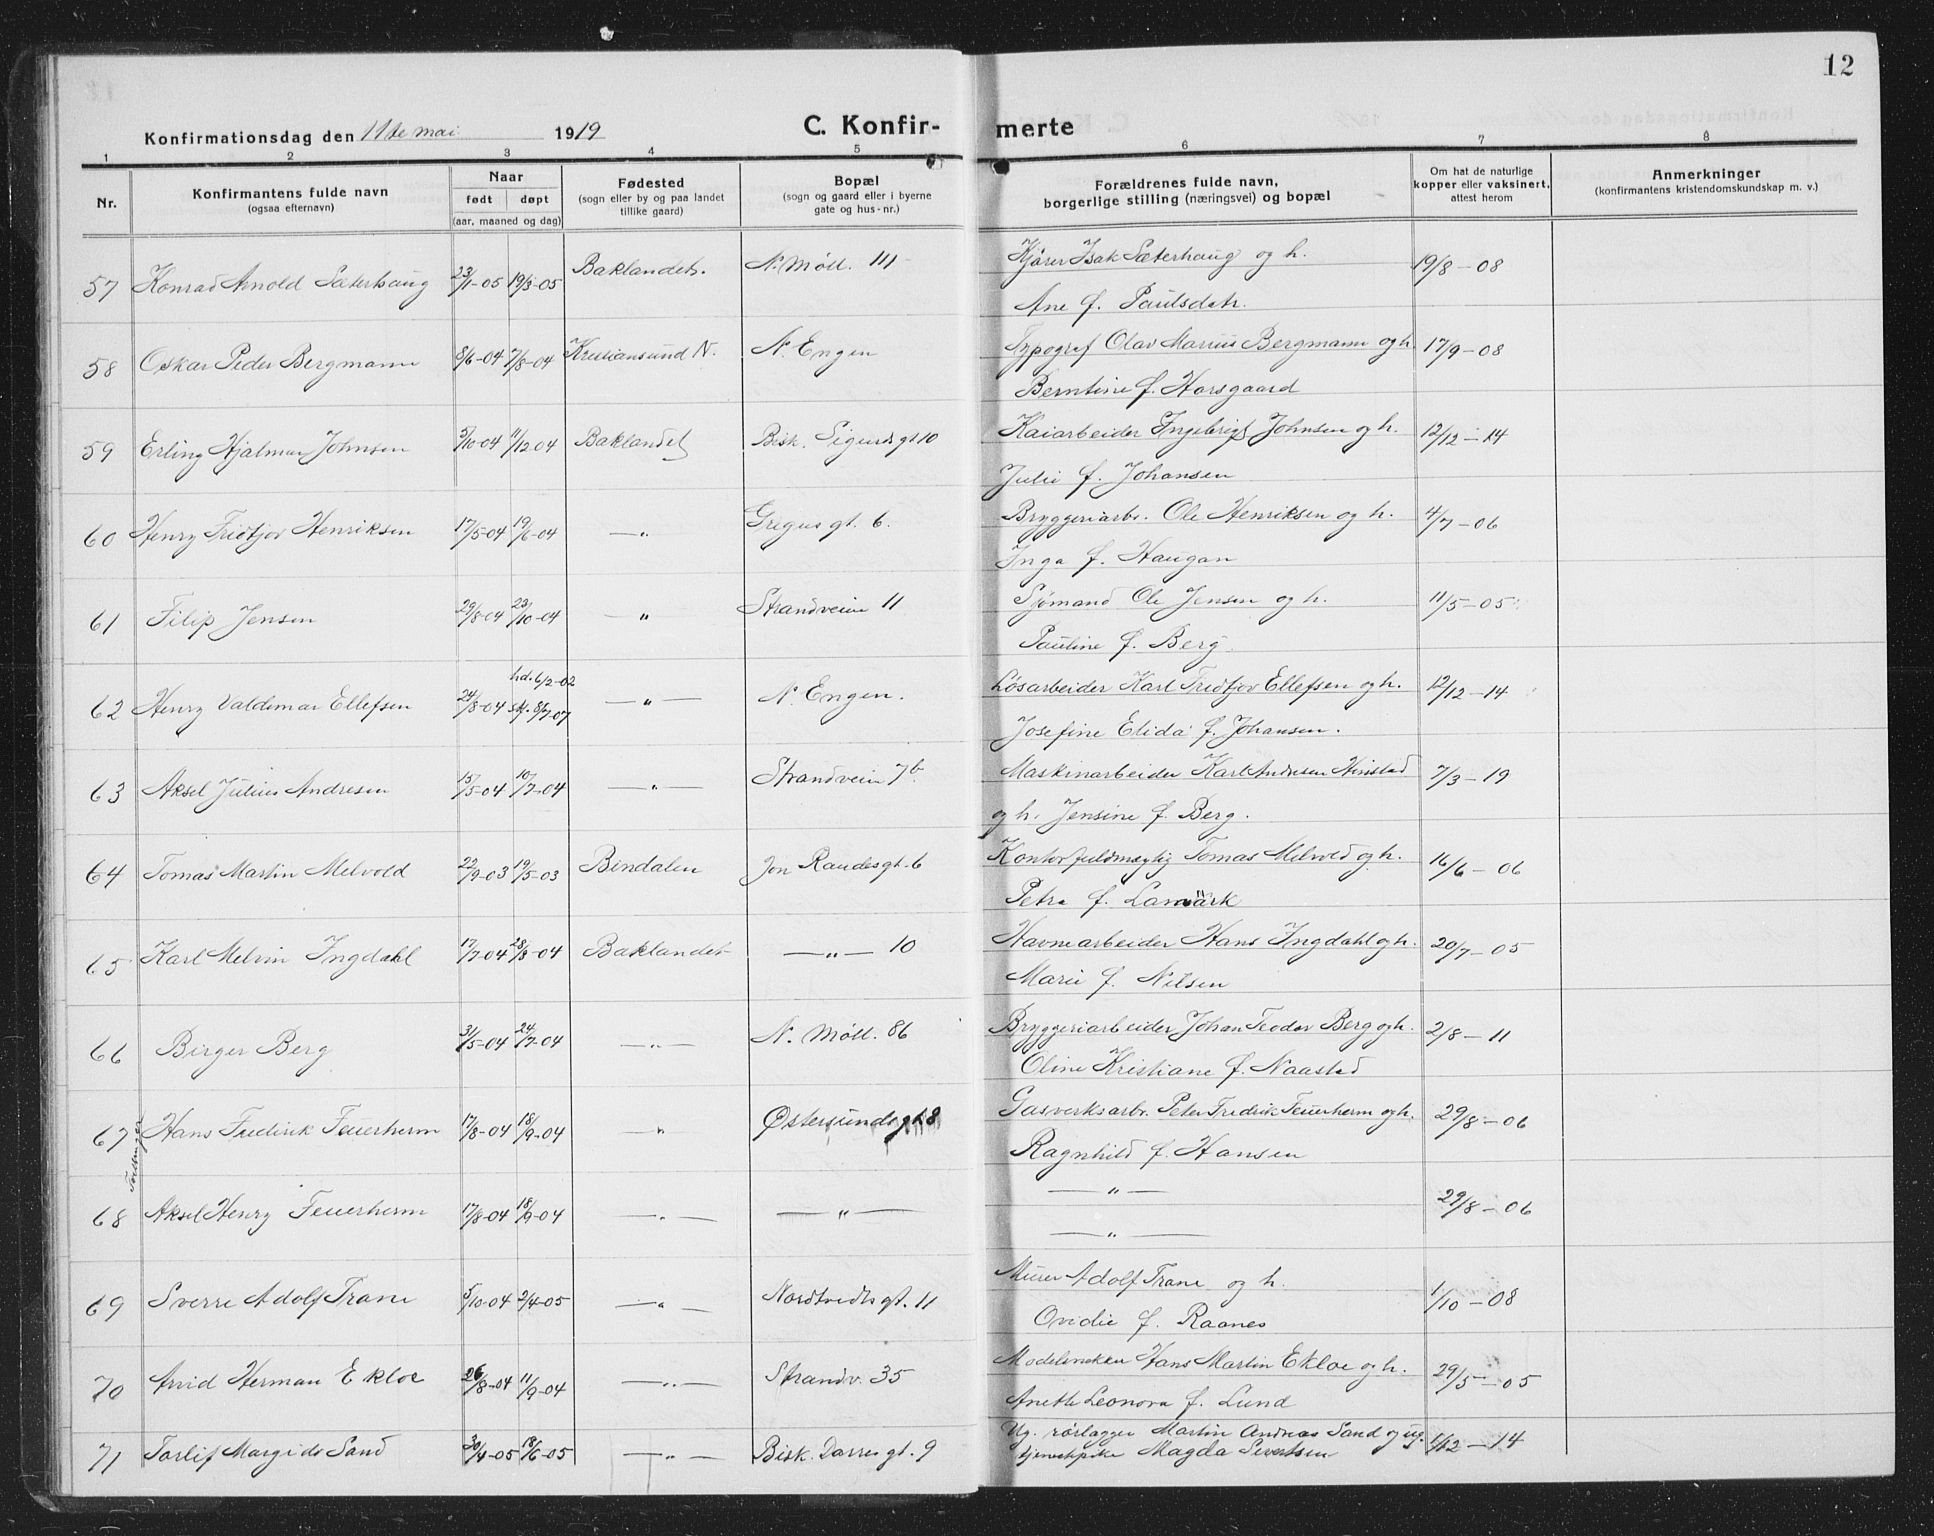 12
Konfirmationsdag den 11te mai 1919 C. Konfirmerte
1 2 3 4 5 6 7 8
Nr. Konfirmantens fulde navn (ogsaa efternavn) Naar født døpt (aar, maaned og dag) Fødested (sogn eller by og paa landet tillike gaard) Bopæl (sogn og gaard eller i byerne gate og hus-nr.) Forældrenes fulde navn, borgerlige stilling (næringsvei) og bopæl Om hat de naturlige kopper eller vaksinert, attest herom Anmerkninger (konfirmantens kristendomskundskap m. v.)
57 Konrad Arnold Sæterhaug 23/1-05 19/3-05 Baklandet. N. Möll. 111 Kjører Isak Sæterhaug og h. 19/8-08
Ane f. Paulsdatr.
58 Oskar Peder Bergmann 8/6-04 7/8-04 Kristiansund N. N. Engen Typograf Olav Marius Bergmann og h 17/9-08
Berntine f. Horsgaard
59 Erling Hjalmar Johnsen 5/10-04 11/12 04 Baklandet Bisk. Sigurds gt 10 Kaiarbeider Ingebrigt Johnsen og h. 12/12-14
Julie f. Johansen
60 Henry Fridtjov Henriksen 17/5-04 19/6-04 —"— Gregus gt. 6. Bryggeriarb. Ole Henriksen og h. 4/7-06
Inga f. Haugan
61 Filip Jensen 29/8-04 23/10-04 —"— Strandveien 11 Sjømand Ole Jensen og h. 11/5-05
Pauline f. Berg.
62 Henry Valdemar Ellefsen 24/8-04 hd. 6/2-02 stf. 8/7-07 —"— N. Engen. Løsarbeider Karl Fridtjov Ellefsen og h. 12/12-14
Josefine Elida f. Johansen.
63 Aksel Julius Andresen 15/5-04 10/7-04 —"— Strandveien 7b Maskinarbeider Karl Andresen Hinstad 7/3-19
og h. Jensine f. Berg.
64 Tomas Martin Melvold 22/9-03 19/5-03 Bindalen Jon Raudes gt. 6 Kontorfuldmægtig Tomas Melvold og h. 16/6-06
Petra f. Lamärk
65 Karl Melvin Ingdahl 17/7-04 28/8-04 Baklandet —"— 10 Havnearbeider Hans Ingdahl og h. 20/7-05
Marie f. Nilsen
66 Birger Berg 31/5-04 24/7-04 —"— N. Möll. 86 Bryggeriarbeider Johan Teodor Berg og h. 2/8-11
Oline Kristiane f. Naastad
67 Hans Fredrik Feuerherm 17/8-04 18/9-04 —"— Østersunds gt 8 Gasverksarb. Peter Fredrik Feuerherm og h. 29/8-06
Tvillinger Ragnhild f. Hansen
68 Aksel Henry Feuerherm 17/8-04 18/9-04 —"— —"— —"— 29/8-06
—"—
69 Sverre Adolf Trane 5/10-04 2/4-05 —"— Nordtvedts gt. 11 Murer Adolf Trane og h. 1/10-08
Ovidie f. Raanes
70 Arvid Herman Ekloe 26/8-04 11/9-04 —"— Strandv. 35 Modelsnekker Hans Martin Ekloe og h. 29/5-05
Anette Leonora f. Lund
71 Torlif Margido Sand 30/4-05 18/6-05 —"— Bisk. Darres gt. 9 Ug. rørlægger Martin Andreas Sand og ug. 1/12-14
tjenestpike Magda Sivertsen